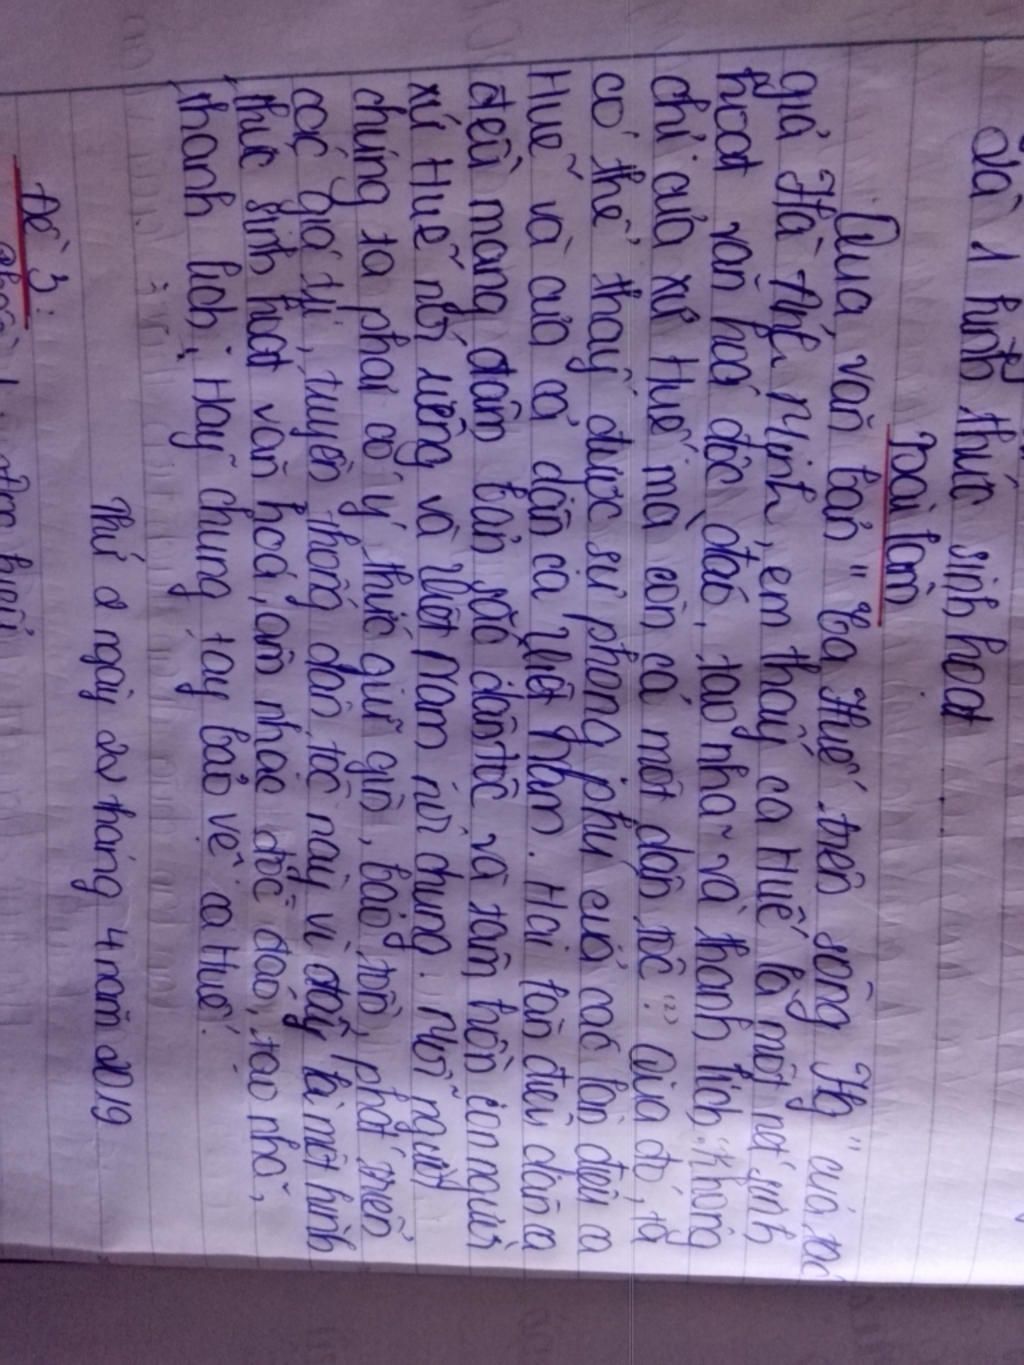 là 1 hình thức sinh hoạt
Bài làm
Qua văn bản "Ca Huế trên sông Hg" của tác
giả Hà Ánh Minh, em thấy ca Huế là một nét sinh
hoạt văn hoá độc đáo, tao nhã và thanh lịch không
chỉ của xứ Huế mà còn cả một dân tộc. Qua đó, ta
có thể thấy được sự phong phú của các làn điệu ca
Huế và của cả dân ca Việt Nam. Hai làn điệu dân ca
đều mang đậm bản sắc dân tộc và tâm hồn con người
xứ Huế nói riêng và Việt Nam nói chung. Mỗi người
chúng ta phải có ý thức giữ gìn, bảo tồn, phát triển
các giá trị, truyền thống dân tộc này vì đây là một hình
thức sinh hoạt văn hoá, âm nhạc độc đáo, tao nhã,
thanh lịch; Hãy chung tay bảo vệ ca Huế.
Thứ 2 ngày 22 tháng 4 năm 2019
Đề 3: